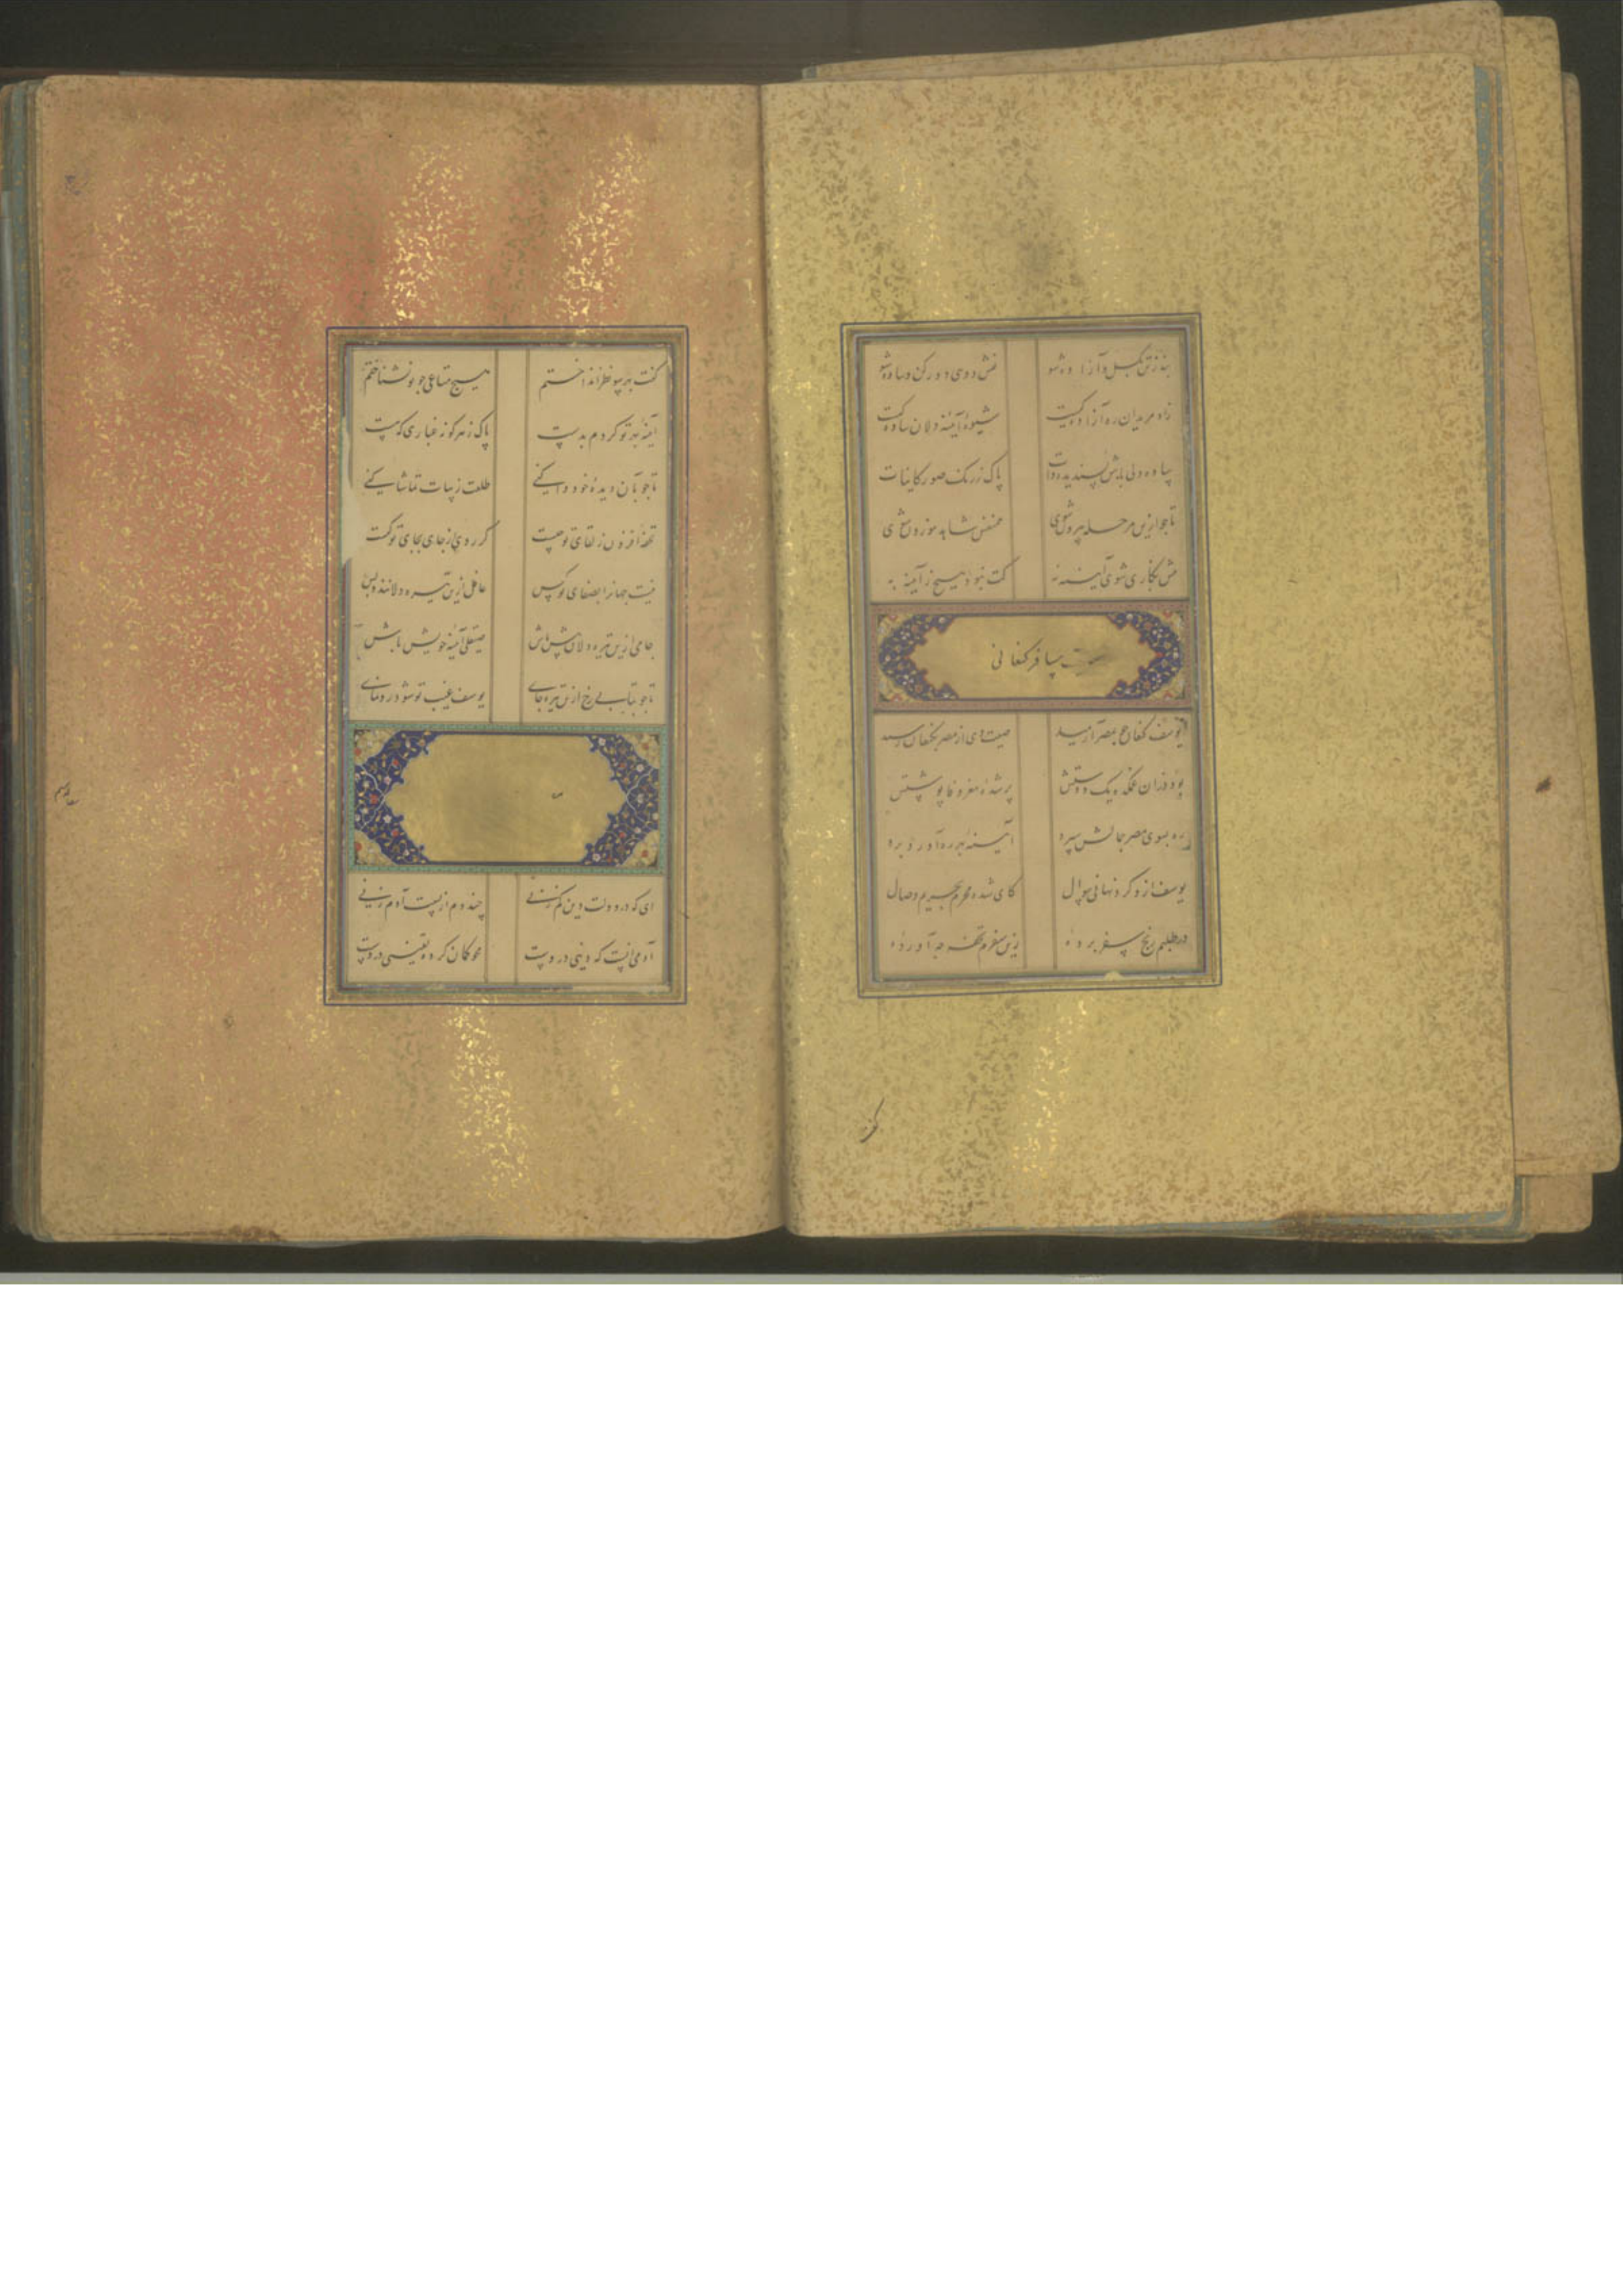 بند ز تن بگسل و آزاده شو نقش دوی دور کن و ساده شو
زاد مریدان ره آزادگیست شیوهٔ آینه دلان سادگیست
ساده دلی باش پسندیده ذات پاک ز رنگ صور کاینات
تا چو ازین مرحله بیرون شوی همنفس شاهد موزون شوی
گفت نبود هیچ ز آینه به
مسافر کنعانی
یوسف کنعان چو بمصر آرمید صیت وی از مصر بکنعان رسید
بود در آن غمکده یک دوستش پر شده مغز وفا پوستش
ره بسوی مصر جمالش سپرد آینه بهر ره آورد برد
یوسف ازو کرد نهانی سوال کای شده محرم بحریم وصال
در طلبم رنج سفر برده زین سفرم تحفه چه آورده
گفت بهر سو نظر انداختم هیچ متاعی چو تو نشناختم
آینه بهر تو کردم بدست پاک ز هر گونه غباری که هست
تا چو بآن دیدهٔ خود وا کنی طلعت زیبات تماشا کنی
تحفه افزون ز لقای تو چیست گر روی از جای بجای تو کیست
نیست جهانرا بصفای تو کس غافل ازین تیره دلانند و بس
جامی ازین تیره دلان پیش باش صیقلی آینه خویش باش
تا چو بتابی رخ ازین تیره جای یوسف غیب تو شود رونمای
ای که در دولت دین کم زنی چند دم از نسبت آدم زنی
آدمی آنست که دینی دروست محو کمان کرده یقینی دروست